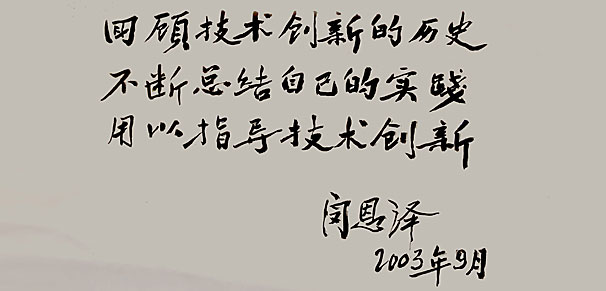 回顾技术创新的历史
不断总结自己的实践
用以指导技术创新
闵恩泽
2003年9月